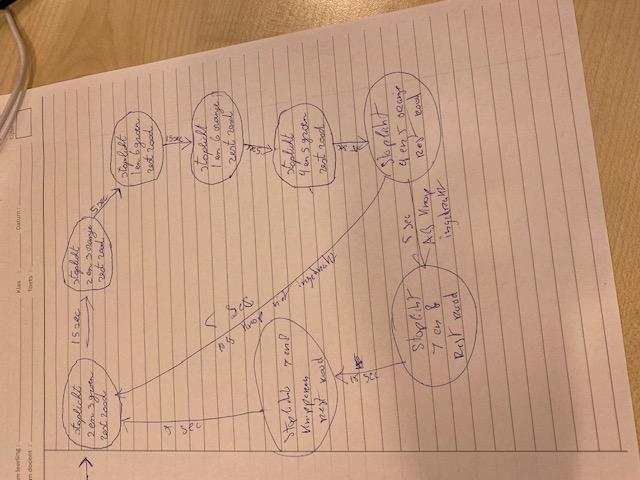 m leerling :
Klas :
Datum :
m docent :
Toets :
Stoplicht
2 en 3 groen
rest rood
15 sec
stoplicht
2 en 3 oranje
rest rood
5 sec
stoplicht
1 en 6 groen
rest rood
15 sec
stoplicht
1 en 6 oranje
rest rood
5 sec
stoplicht
4 en 5 groen
rest rood
Stoplicht
4 en 5 oranje
Rest rood
5 sec
Als knop
ingedrukt
Stoplicht
7 en 8
Rest rood
15 sec
Stoplicht 7 en 8
knipperen
Rest rood
5 sec
5 sec
Als knop niet ingedrukt